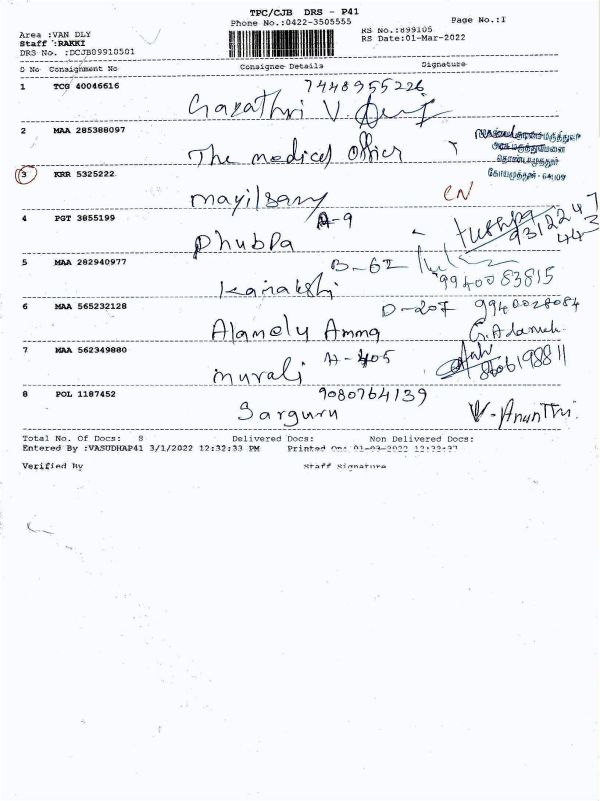 TPC/CJB DRS - P41
Phone No.:0422-3505555
Page No.:1
Area :VAN DLY
RS No.:899105
Staff :RAKKI
RS Date:01-Mar-2022
DRS No. :DCJB09910501
S No Consignment No Consignee Details Signature
1 TCG 40046616 7448955226
Gayathri V.
2 MAA 285388097
The medical officer
தொண்டாமுத்தூர்
கோயமுத்தூர் - 641109
3 KRR 5325222
mayilsamy CN
4 PGT 3855199 A-9
phubpa tushpa
9312247
443
5 MAA 282940977 B-62
kanakshi 9940083815
6 MAA 565232128 D-207 9940028084
Alamelu Amma
7 MAA 562349880 A-405
murali 8606198811
8 POL 1187452 9080764139
Sarguru V. Ananthi.
Total No. Of Docs: 8 Delivered Docs: Non Delivered Docs:
Entered By :VASUDHAP41 3/1/2022 12:32:33 PM Printed On: 01-03-2022 12:32:37
Verified By Staff Signature